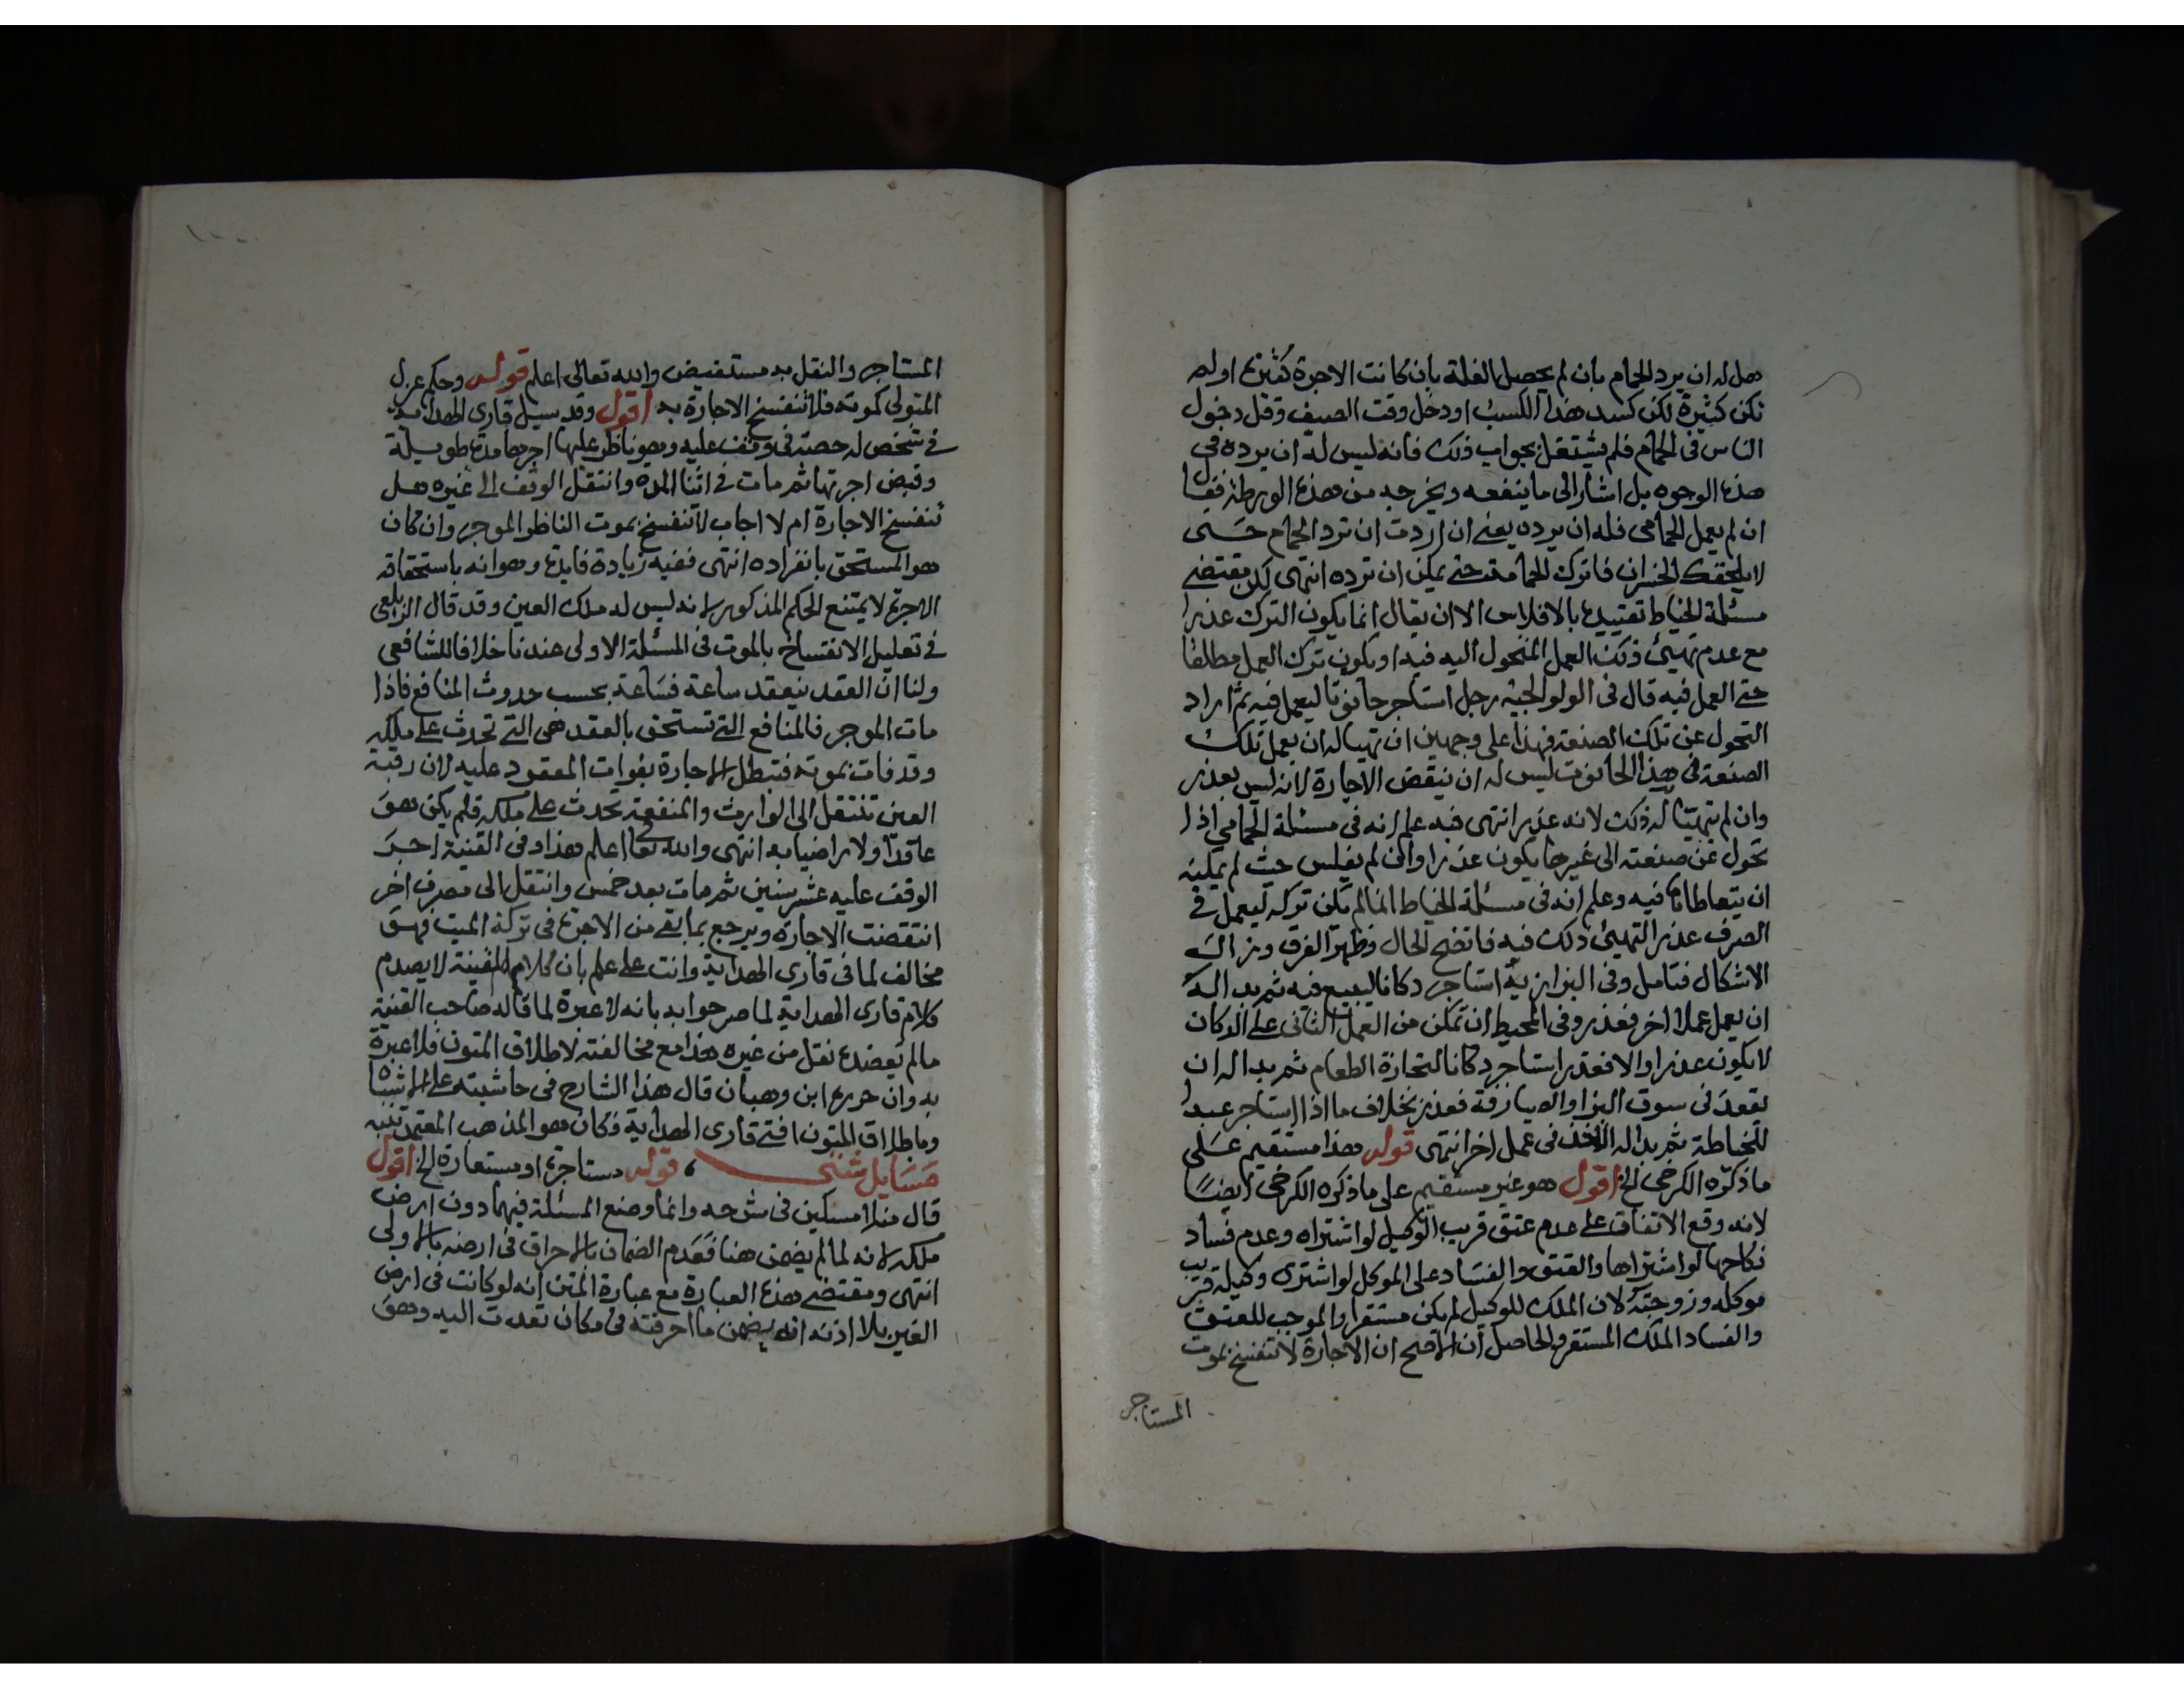 هل له ان يرد الحمام بان لم يحصل الغلة بان كانت الاجرة كثيرة اولم
تكن كثيرة لكن كسد هذا الكسب او دخل وقت الصيف وقل دخول
الناس فى الحمام فلم يشتغل بجواب ذلك فانه ليس له ان يرده فى
هذه الوجوه بل اشار الى ما ينفعه ويخرجه من هذه الورطة فقال
ان لم يعمل الحمامى فله ان يرده يعنى ان اردت ان ترد الحمام حتى
لا يلحقك الخسران فاترك الحمامية حتى يمكن ان ترده انتهى لكن مقتضى
مسئلة الخياط تقييده بالافلاس الا ان يقال انما يكون الترك عذرا
مع عدم تهيئ ذلك العمل المتحول اليه فيه او يكون ترك العمل مطلقا
حتى العمل فيه قال فى الولوالجية رجل استاجر حانوتا ليعمل فيه ثم اراد
التحول عن تلك الصنعة فهذا على وجهين ان تهيا له ان يعمل تلك
الصنعة فى هذا الحانوت ليس له ان ينقض الاجارة لانه ليس بعذر
وان لم يتهيا له ذلك لانه عذر انتهى فبه علم انه فى مسئلة الحمامي اذا
تحول عن صنعته الى غيرها يكون عذرا وان لم يفلس حيث لم يمكنه
ان يتعاطاها فيه وعلم انه فى مسئلة الخياط انما لم يكن تركه ليعمل فى
الصرف عذر التهيئ ذلك فيه فاتضح الحال وظهر الفرق وزال
الاشكال فتامل وفى البزازية استاجر دكانا ليبيع فيه ثم بدا له
ان يعمل عملا اخر فعذر وفى المحيط ان تمكن من العمل الثانى على الدكان
لا يكون عذرا والا فعذر استاجر دكانا لتجارة الطعام ثم بدا له ان
يقعد فى سوق البز او الصيارفة فعذر بخلاف ما اذا استاجر عبدا
للخياطة ثم بدا له الاخذ فى عمل اخر انتهى قوله هذا مستقيم على
ما ذكره الكرخى الخ اقول هو غير مستقيم على ما ذكره الكرخى ايضا
لانه وقع الاتفاق على عدم عتق قريب الوكيل لو اشتراه وعدم فساد
نكاحها لو اشتراها والعتق والفساد على الموكل لو اشترى وكيله قريب
موكله وزوجته لان الملك للوكيل لم يكن مستقرا والموجب للعتق
والفساد الملك المستقر والحاصل ان الاصح ان الاجارة لا تنفسخ بموت
المستاجر
المستاجر والنقل به مستفيض والله تعالى اعلم قوله وحكم عزل
المتولى كموته فلا تنفسخ الاجارة به اقول وقد سيل قارى الهداية
فى شخص له حصة فى وقف عليه وهو ناظر عليها اجرها مدة طويلة
وقبض اجرتها ثم مات فى اثنا المدة وانتقل الوقف الى غيره هل
تنفسخ الاجارة ام لا اجاب لا تنفسخ بموت الناظر الموجر وان كان
هو المستحق بانفراده انتهى ففيه زيادة فايدة وهو انه باستحقاقه
الاجرة لا يمتنع الحكم المذكور لانه ليس له ملك العين وقد قال الزيلعى
فى تعليل الانفساخ بالموت فى المسئلة الاولى عندنا خلافا للشافعى
ولنا ان العقد ينعقد ساعة فساعة بحسب حدوث المنافع فاذا
مات الموجر فالمنافع التى تستحق بالعقد هى التى تحدث على ملكه
وقد فات بموته فتبطل الاجارة بفوات المعقود عليه لان رقبة
العين تنتقل الى الوارث والمنفعة تحدث على ملكه فلم يكن هو
عاقدا ولا راضيا به انتهى والله تعا اعلم هذا وفى القنية اجر
الوقف عليه عشر سنين ثم مات بعد خمس وانتقل الى مصرف اخر
انتقضت الاجارة ويرجع بما بقى من الاجرة فى تركة الميت فهو
مخالف لما فى قارى الهداية وانت على علم بان كلام القنية لا يصدم
كلام قارى الهداية لما صرحوا به بانه لا عبرة لما قاله صاحب القنية
مالم يعضده نقل من غيره هذا مع مخالفته لاطلاق المتون فلا عبرة
به وان حرره ابن وهبان قال هذا الشارح فى حاشيته على الاشباه
وباطلاق المتون افتى قارى الهداية فكان هو المذهب المعتمد تنبه
مسايل شتى قوله مستاجرة او مستعارة الخ اقول
قال منلا مسكين فى شرحه وانما وضع المسئلة فيهما دون ارض
ملكه لانه لما لم يضمن هنا فعدم الضمان بالاحراق فى ارضه بالاولى
انتهى ومقتضى هذه العبارة مع عبارة المتن انه لو كانت فى ارض
الغير بلا اذنه انه يضمن ما احرقته فى مكان تعدت اليه وهو